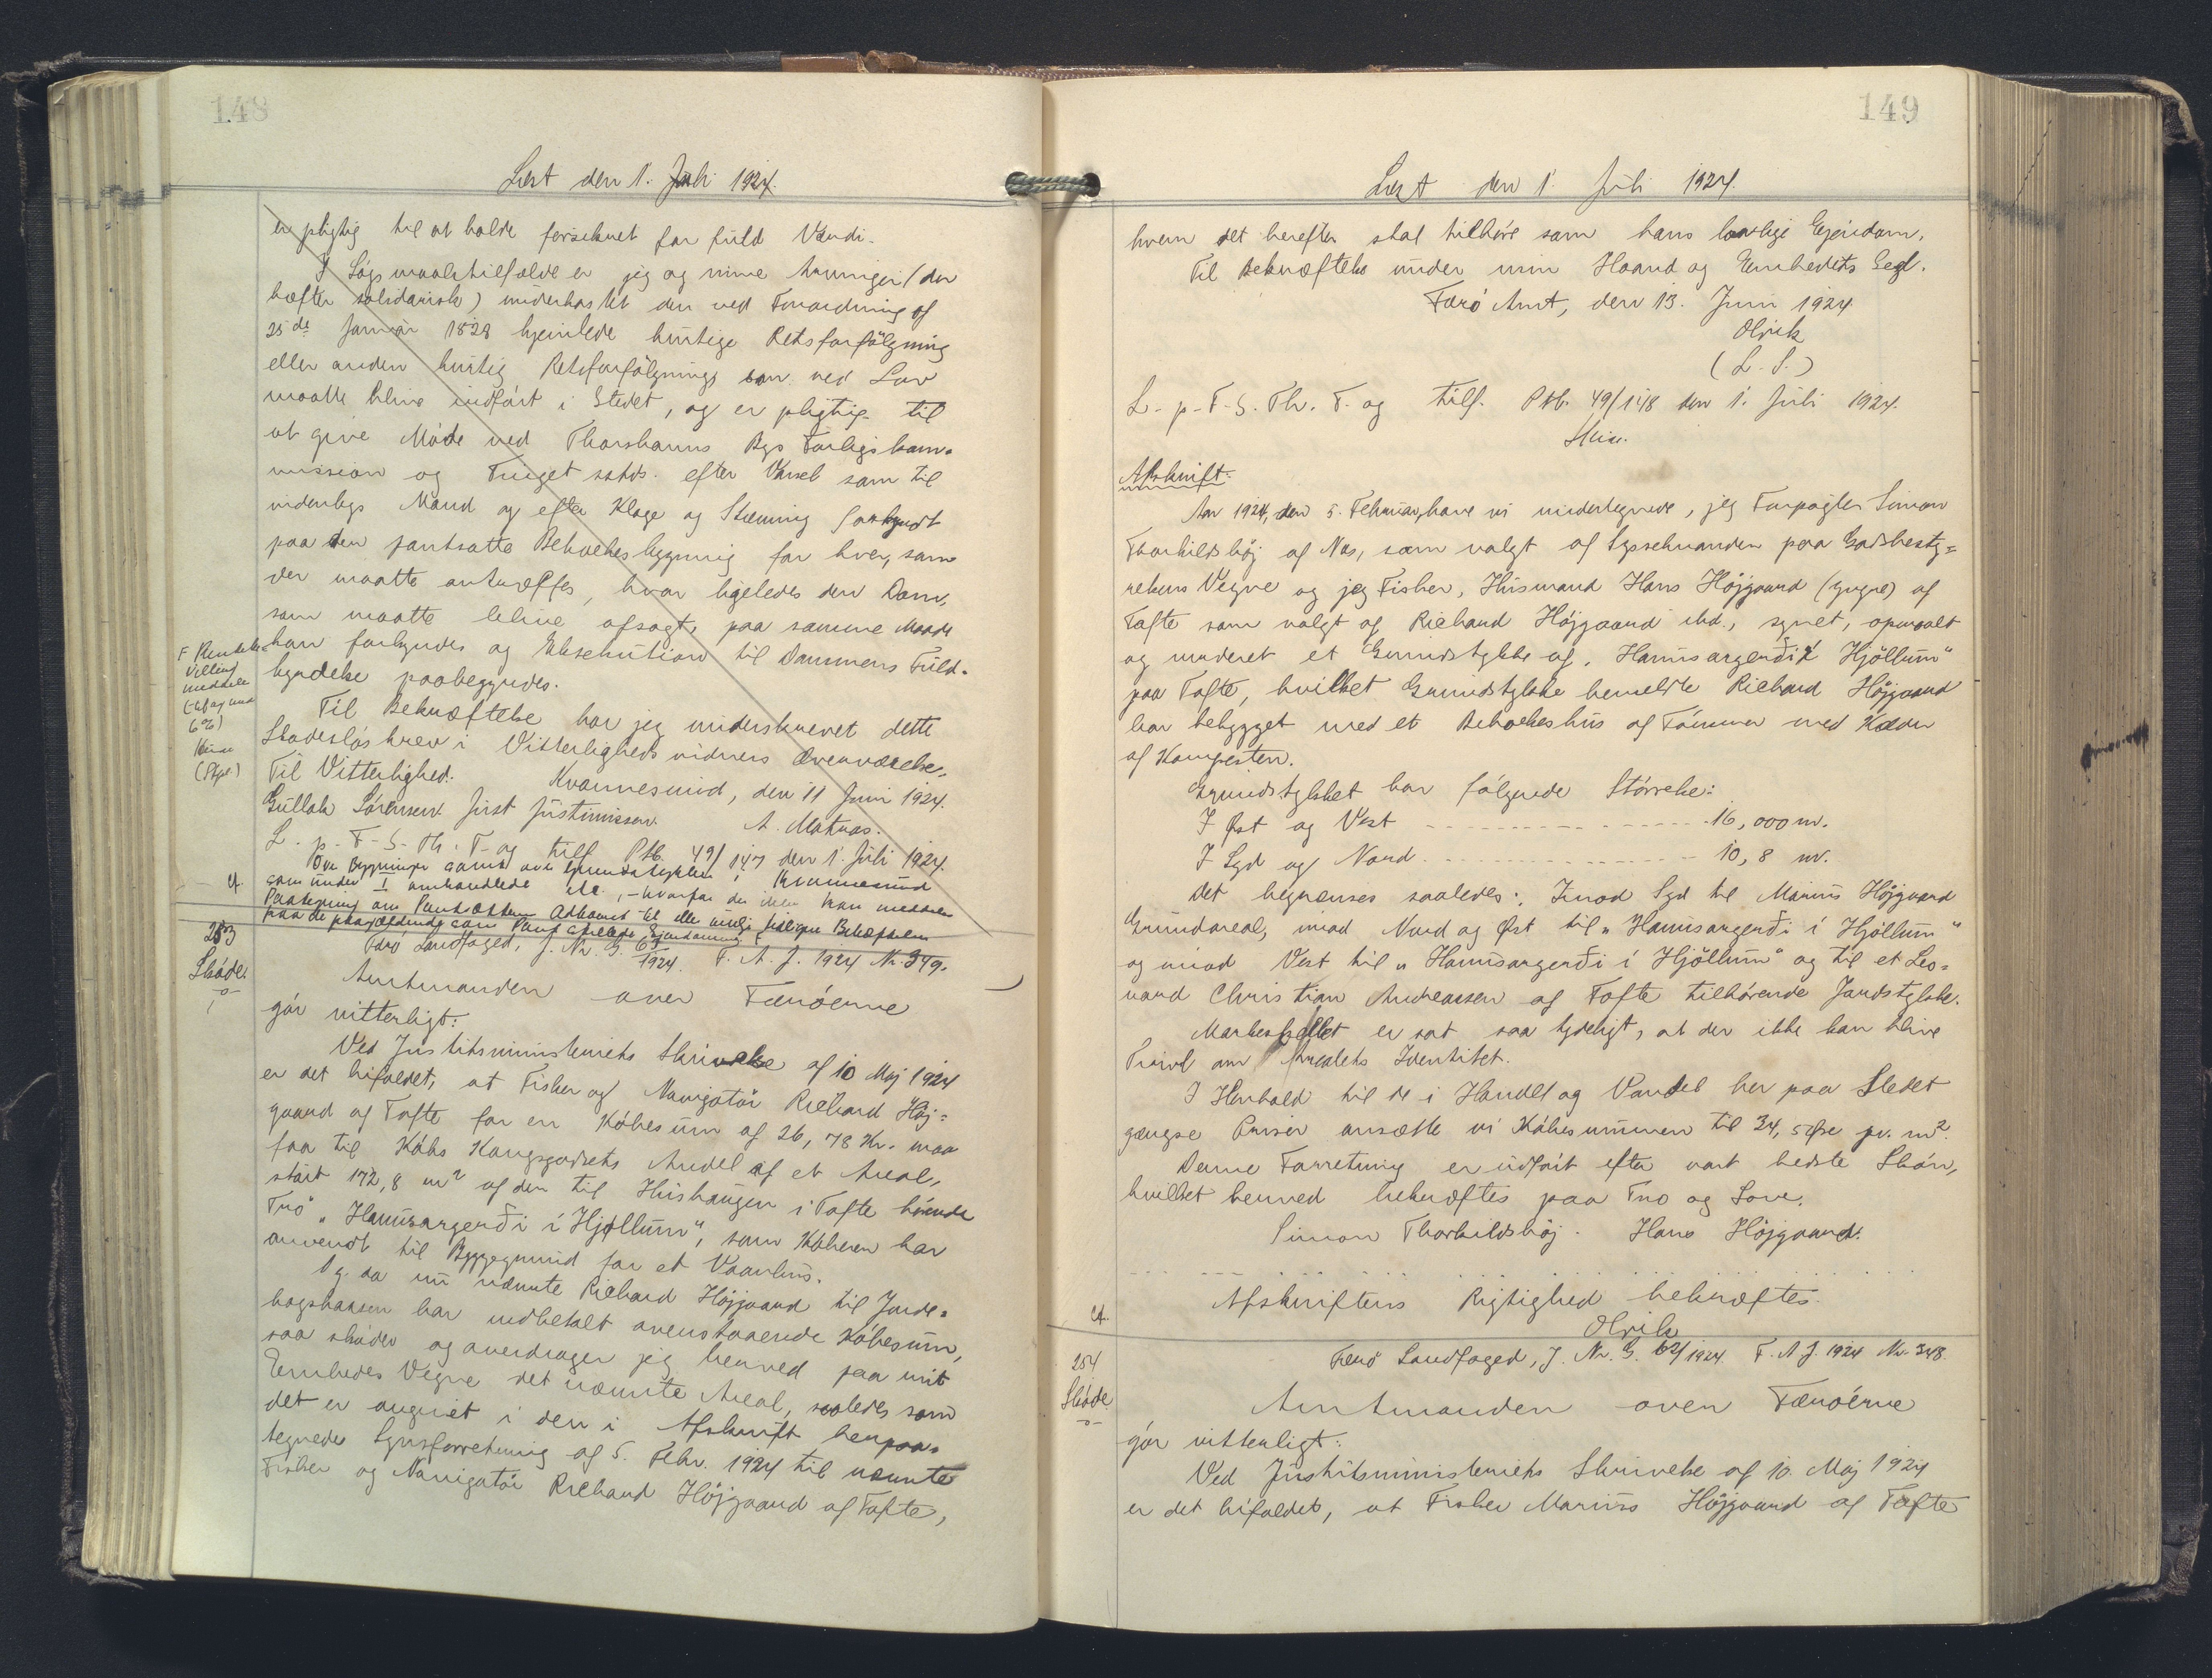 148
Læst den 1. Juli 1924.
er pligtig til at holde forsikret for fuld Værdi.
I Søgsmaalstilfælde er jeg og mine Arvinger (der
hæfter solidarisk) underkastet den ved Forordning af
25de Januar 1828 hjemlede hurtige Retsforfølgning
eller anden hurtig Retsforfølgning som ved Lov
maatte blive indført i Stedet, og er pligtig til
at give Møde ved Thorshavns Bys Forligskom-
mission og Tinget sstds. efter Varsel som til
indenbys Mand og efter Klage og Stævning forkyndt
paa den pantsatte Beboelsesbygning for hver, som
der maatte antræffes, hvor ligeledes den Dom,
som maatte blive afsagt, paa samme Maade
kan forkyndes og Eksekution til Dommens Fuld-
byrdelse paabegyndes.
Til Bekræftelse har jeg underskrevet dette
Skadesløsbrev i Vitterlighedsvidners Overværelse.
Kvannesund, den 11 Juni 1924.
Til Vitterlighed.
Gullak Sörensen. Just Justinussen. A. Matras.
L. p. F. S. Th. F. og tilf. Ptb. 49/147 den 1. Juli 1924.
Om Bygninger samt om Grundstykket i Kvannesund
som under I omhandlede etc., - hvorfor der ikke kan meddeles
Paategning om Pantsætters Adkomst til eller
paa de paagældende som Pant stillede Ejendomme F
cf.
253
Skøde.
Færø Landfoged, J. Nr. G. 63/1924. F. A. J. 1924 Nr. 349.
Amtmanden over Færöerne
gør vitterligt:
Ved Justitsministeriets Skrivelse af 10 Maj 1924
er det bifaldet, at Fisker og Navigatør Richard Höj=
gaard af Tofte for en Købesum af 26,78 Kr. maa
faa til Købs Kongsgodsets Andel af et Areal,
stort 172,8 m² af den til Húshaugen i Tofte hørende
Trö "Hanusargerði í Hjøllum", som Køberen har
anvendt til Byggegrund for et Vaanhus.
Og da nu nævnte Richard Höjgaard til Jorde=
bogskassen har indbetalt ovenstaaende Købesum,
saa skøder og overdrager jeg herved paa mit
Embedes Vegne det nævnte Areal, saaledes som
det er angivet i den i Afskrift herpaa
tegnede Synsforretning af 5. Febr. 1924 til nævnte
Fisker og Navigatør Richard Höjgaard af Tofte,
149
Læst den 1. Juli 1924.
hvem det herefter skal tilhøre som hans lovlige Ejendom.
Til Bekræftelse under min Haand og Embedets Segl.
Færö Amt, den 13. Juni 1924
Olrik
(L. S.)
L. p. F. S. Th. F. og tilf. Ptb. 49/148 den 1. Juli 1924.
Afskrift:
Aar 1924, den 5. Februar, have vi undertegnede, jeg Forpagter Simon
Thorkildshöj af Nes, som valgt af Sysselmanden paa Godsbesty=
relsens Vegne og jeg Fisker, Husmand Hans Höjgaard (yngre) af
Tofte som valgt af Richard Höjgaard ibd., synet, opmaalt
og vurderet et Grundstykke af "Hanusargerði í Hjöllum"
paa Tofte, hvilket Grundstykke bemeldte Richard Höjgaard
har bebygget med et Beboelseshus af Tömmer med Kælder
af Kampesten.
Grundstykket har følgende Størrelse:
I Øst og Vest - - - - 16,000 m.
I Syd og Nord - - - - 10,8 m.
Det begrænses saaledes: Imod Syd til Marius Höjgaard
Grundareal, imod Nord og Øst til "Hanusargerði í Hjöllum"
og imod Vest til "Hanusargerði í Hjöllum" og til et Leo=
nard Christian Andreassen af Tofte tilhørende Jordstykke.
Markeskellet er sat saa tydeligt, at der ikke kan blive
Tvivl om Arealets Identitet.
I Henhold til de i Handel og Vandel her paa Stedet
gængse Priser ansætte vi Købesummen til 34,5 Øre pr. m².
Denne Forretning er udført efter vort bedste Skøn,
hvilket herved bekræftes paa Tro og Love.
Simon Thorkildshöj. Hans Höjgaard.
Afskriftens Rigtighed bekræftes.
Olrik
cf.
254
Skøde
Færö Landfoged, J. Nr. G. 62/1924 F. A. J. 1924 Nr. 348.
Amtmanden over Færöerne
gør vitterligt:
Ved Justitsministeriets Skrivelse af 10. Maj 1924
er det bifaldet, at Fisker Marius Höjgaard af Tofte